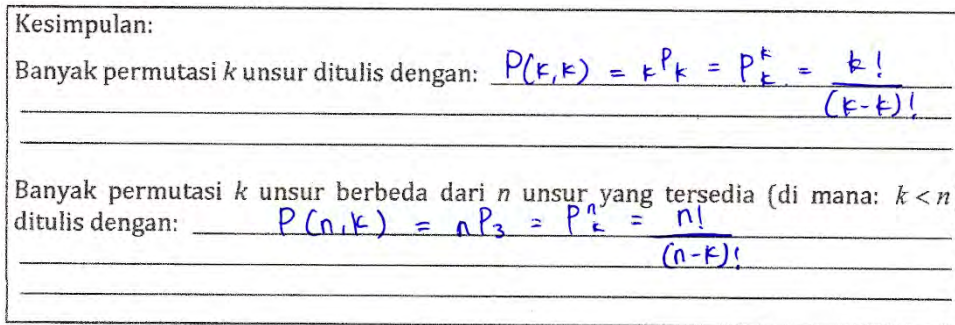 Kesimpulan:
Banyak permutasi k unsur ditulis dengan: P(k,k) = kPk = P^k_k = k!/(k-k)!
Banyak permutasi k unsur berbeda dari n unsur yang tersedia (di mana: k < n
ditulis dengan: P(n,k) = nP3 = P^n_k = n!/(n-k)!